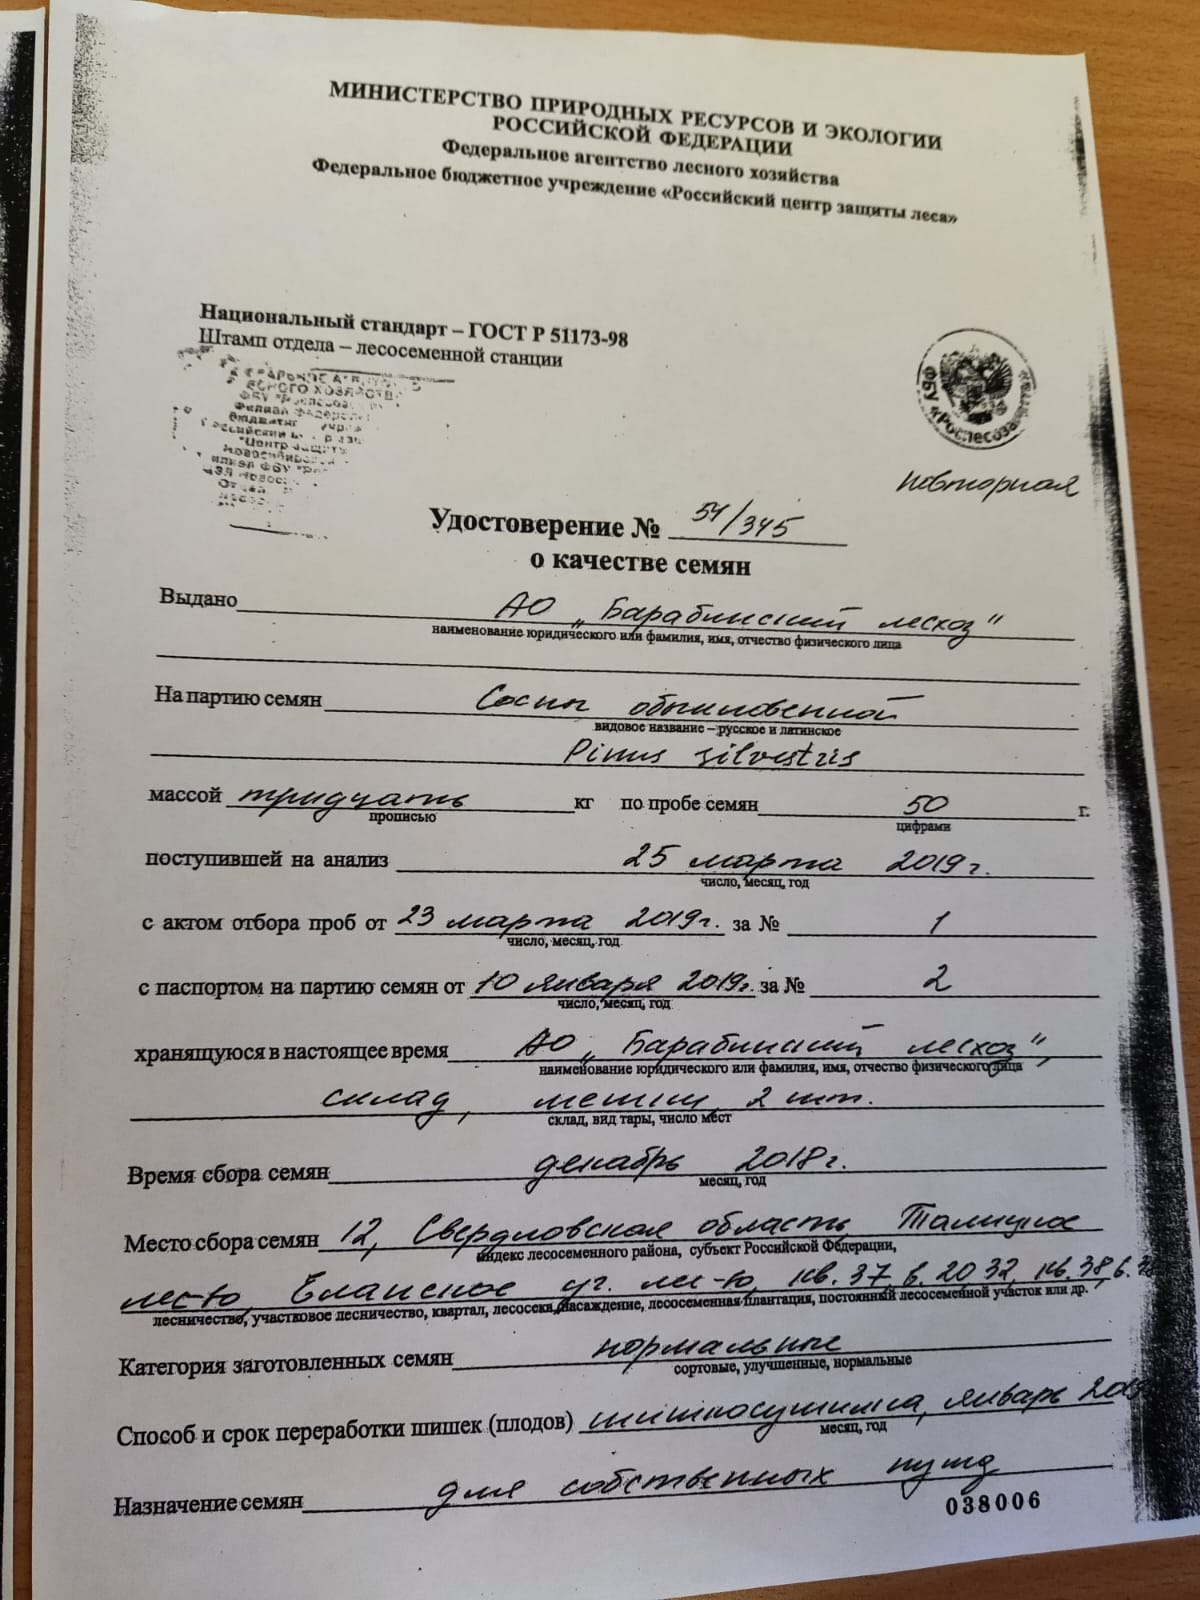 МИНИСТЕРСТВО ПРИРОДНЫХ РЕСУРСОВ И ЭКОЛОГИИ
РОССИЙСКОЙ ФЕДЕРАЦИИ
Федеральное агентство лесного хозяйства
Федеральное бюджетное учреждение «Российский центр защиты леса»
Национальный стандарт – ГОСТ Р 51173-98
Штамп отдела – лесосеменной станции
ФБУ «Рослесоза
повторная
Удостоверение № 54/345
о качестве семян
Выдано АО „Барабинский лесхоз"
наименование юридического или фамилия, имя, отчество физического лица
На партию семян Сосны обыкновенной
видовое название – русское и латинское
Pinus silvestris
массой тридцать кг по пробе семян 50 г.
прописью цифрами
поступившей на анализ 25 марта 2019г.
число, месяц, год
с актом отбора проб от 23 марта 2019г. за № 1
число, месяц, год
с паспортом на партию семян от 10 января 2019г. за № 2
число, месяц, год
хранящуюся в настоящее время АО „Барабинский лесхоз",
наименование юридического или фамилия, имя, отчество физического лица
склад, мешки, 2 шт.
склад, вид тары, число мест
Время сбора семян декабрь 2018г.
месяц, год
Место сбора семян 12, Свердловская область, Талицкое
индекс лесосеменного района, субъект Российской Федерации,
лес-во, Еланское уч. лес-во, кв. 37 в. 20, 32, кв. 38, в.
лесничество, участковое лесничество, квартал, лесосека, насаждение, лесосеменная плантация, постоянный лесосеменной участок или др.
Категория заготовленных семян нормальные
сортовые, улучшенные, нормальные
Способ и срок переработки шишек (плодов) шишкосушилка, январь 2019
месяц, год
Назначение семян для собственных нужд
038006